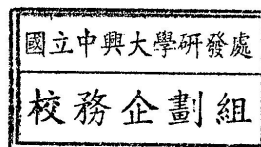 國立中興大學研發處
校務企劃組